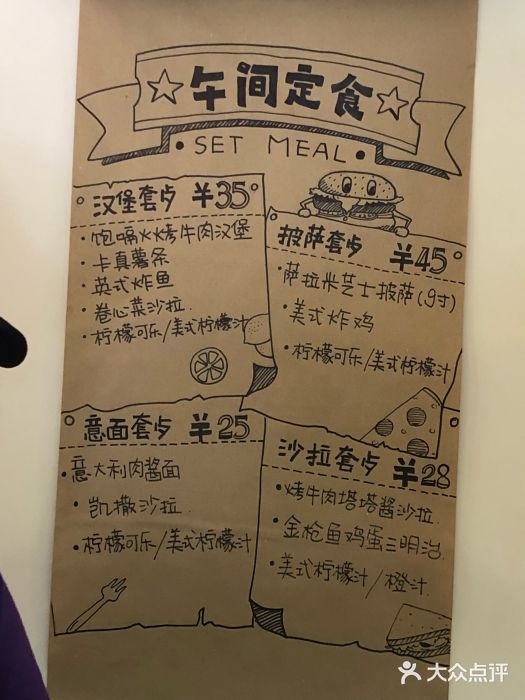 午间定食
• SET MEAL •
汉堡套歺 ¥35
• 饱嗝火烤牛肉汉堡
• 卡真薯条
• 英式炸鱼
• 卷心菜沙拉.
• 柠檬可乐/美式柠檬汁
披萨套歺 ¥45
• 萨拉米芝士披萨(9寸)
• 美式炸鸡
• 柠檬可乐/美式柠檬汁
意面套歺 ¥25
• 意大利肉酱面
• 凯撒沙拉.
• 柠檬可乐/美式柠檬汁
沙拉套歺 ¥28
• 烤牛肉塔塔酱沙拉.
• 金枪鱼鸡蛋三明治.
• 美式柠檬汁/橙汁.
大众点评